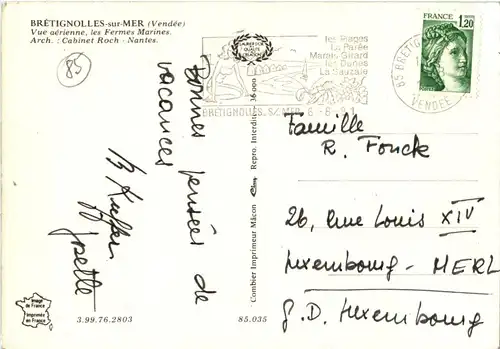 BRÉTIGNOLLES-sur-MER (Vendée)
Vue aérienne, les Fermes Marines.
Arch. : Cabinet Roch - Nantes.
85
Bonnes pensées de
vacances
Josette
les Plages
La Parée
Marais Girard
les Dunes
La Sauzaie
BRETIGNOLLES S/MER
VENDEE
FRANCE
1,20
Famille
R. Fonck
26, Rue Louis XIV
Luxembourg - MERL
G.D. Luxembourg
Combier Imprimeur Mâcon
Repro. Interdite
Image
de France
Imprimée
en France
3.99.76.2803
85.035